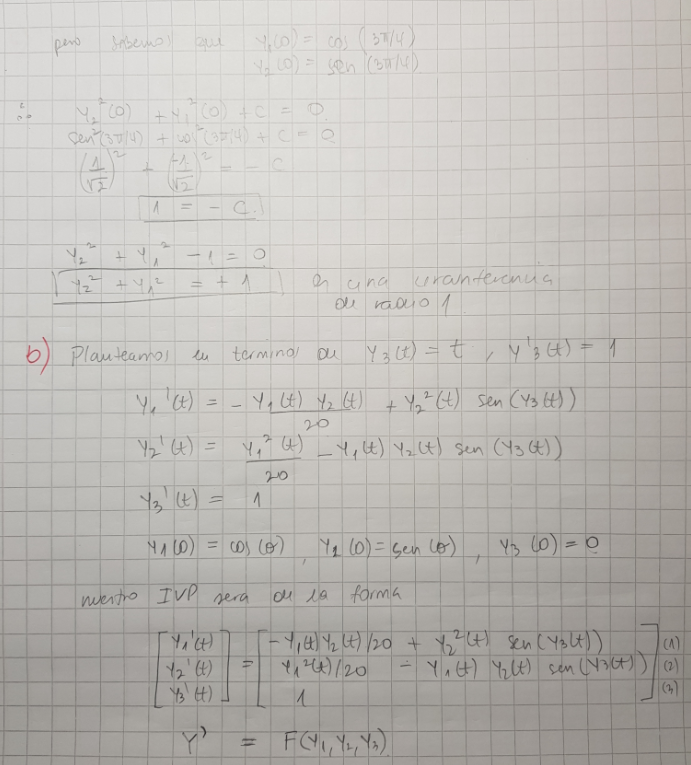 pero sabemos que Y₁(0) = cos (3π/4)
Y₂(0) = sen (3π/4)
∴ Y₂²(0) + Y₁²(0) + C = 0
sen²(3π/4) + cos²(3π/4) + C = 0
(1/√2)² + (-1/√2)² = - C
1 = - C.
Y₂² + Y₁² - 1 = 0
Y₂² + Y₁² = + 1 es una circunferencia
de radio 1.
b) Planteamos en terminos de Y₃(t) = t, Y'₃(t) = 1
Y₁'(t) = - Y₁(t) Y₂(t)/20 + Y₂²(t) sen(Y₃(t))
Y₂'(t) = Y₁²(t)/20 - Y₁(t) Y₂(t) sen(Y₃(t))
Y₃'(t) = 1
Y₁(0) = cos(θ), Y₂(0) = sen(θ), Y₃(0) = 0
nuestro IVP sera de la forma
[Y₁'(t)] = [-Y₁(t)Y₂(t)/20 + Y₂²(t) sen(Y₃(t))] (1)
[Y₂'(t)] [Y₁²(t)/20 - Y₁(t) Y₂(t) sen(Y₃(t))] (2)
[Y₃'(t)] [1] (3)
Y' = F(Y₁, Y₂, Y₃)